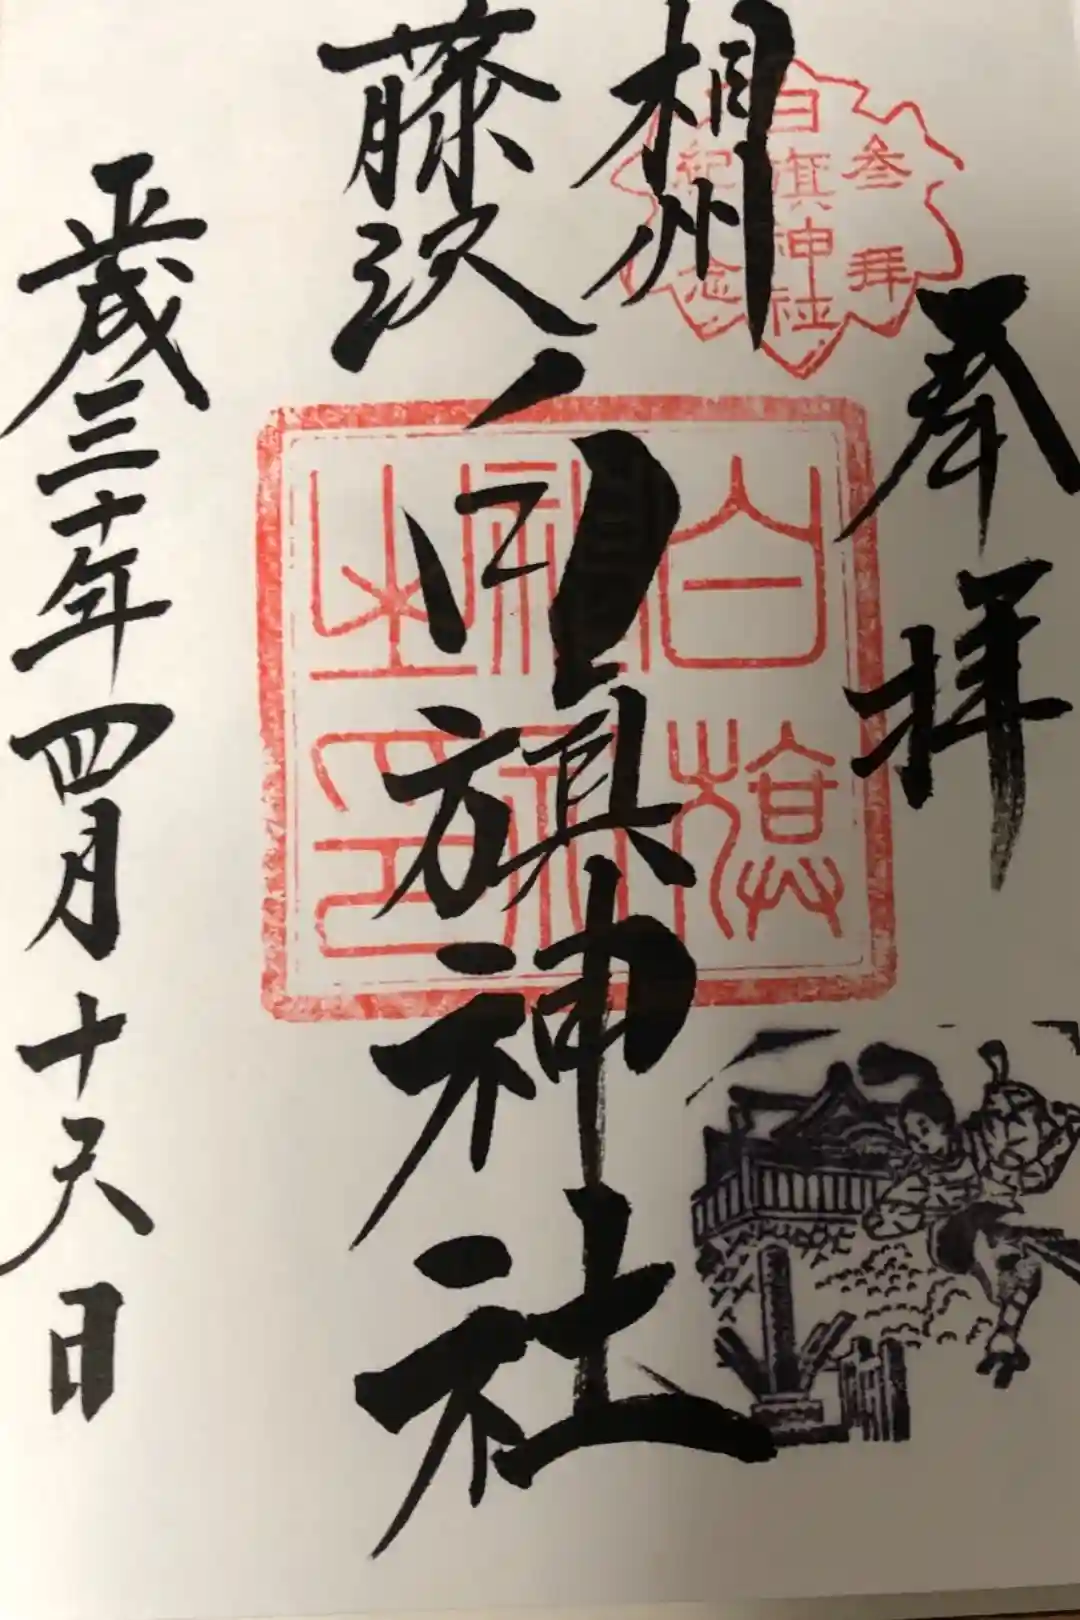 奉拝
参拝
白旗神社
紀念
相州
藤沢
白旗神社
白旗
神社
之印
平成三十年四月十六日